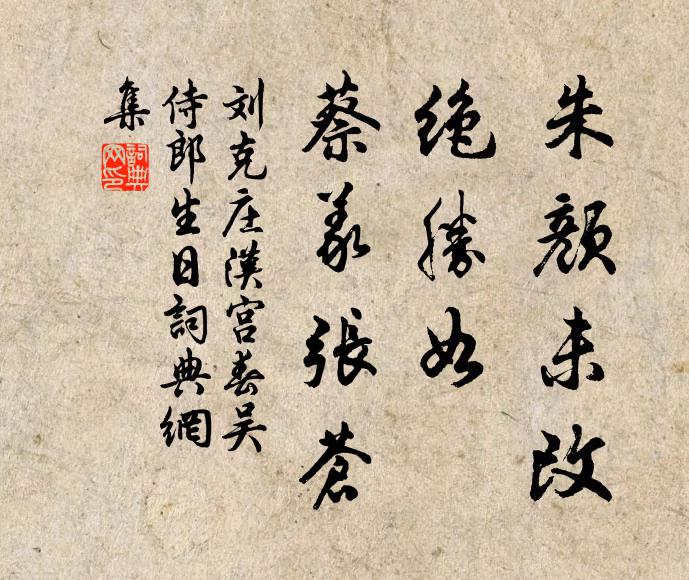 朱颜未改
绝勝如
蔡義張蒼
刘克庄漢宫春吴
侍郎生日詞典網
集
詞典網印